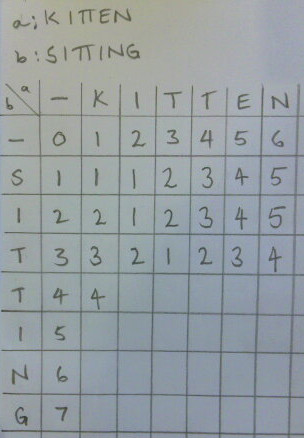 a: KITTEN
b: SITTING
b \ a – K I T T E N
– 0 1 2 3 4 5 6
S 1 1 1 2 3 4 5
I 2 2 1 2 3 4 5
T 3 3 2 1 2 3 4
T 4 4
I 5
N 6
G 7